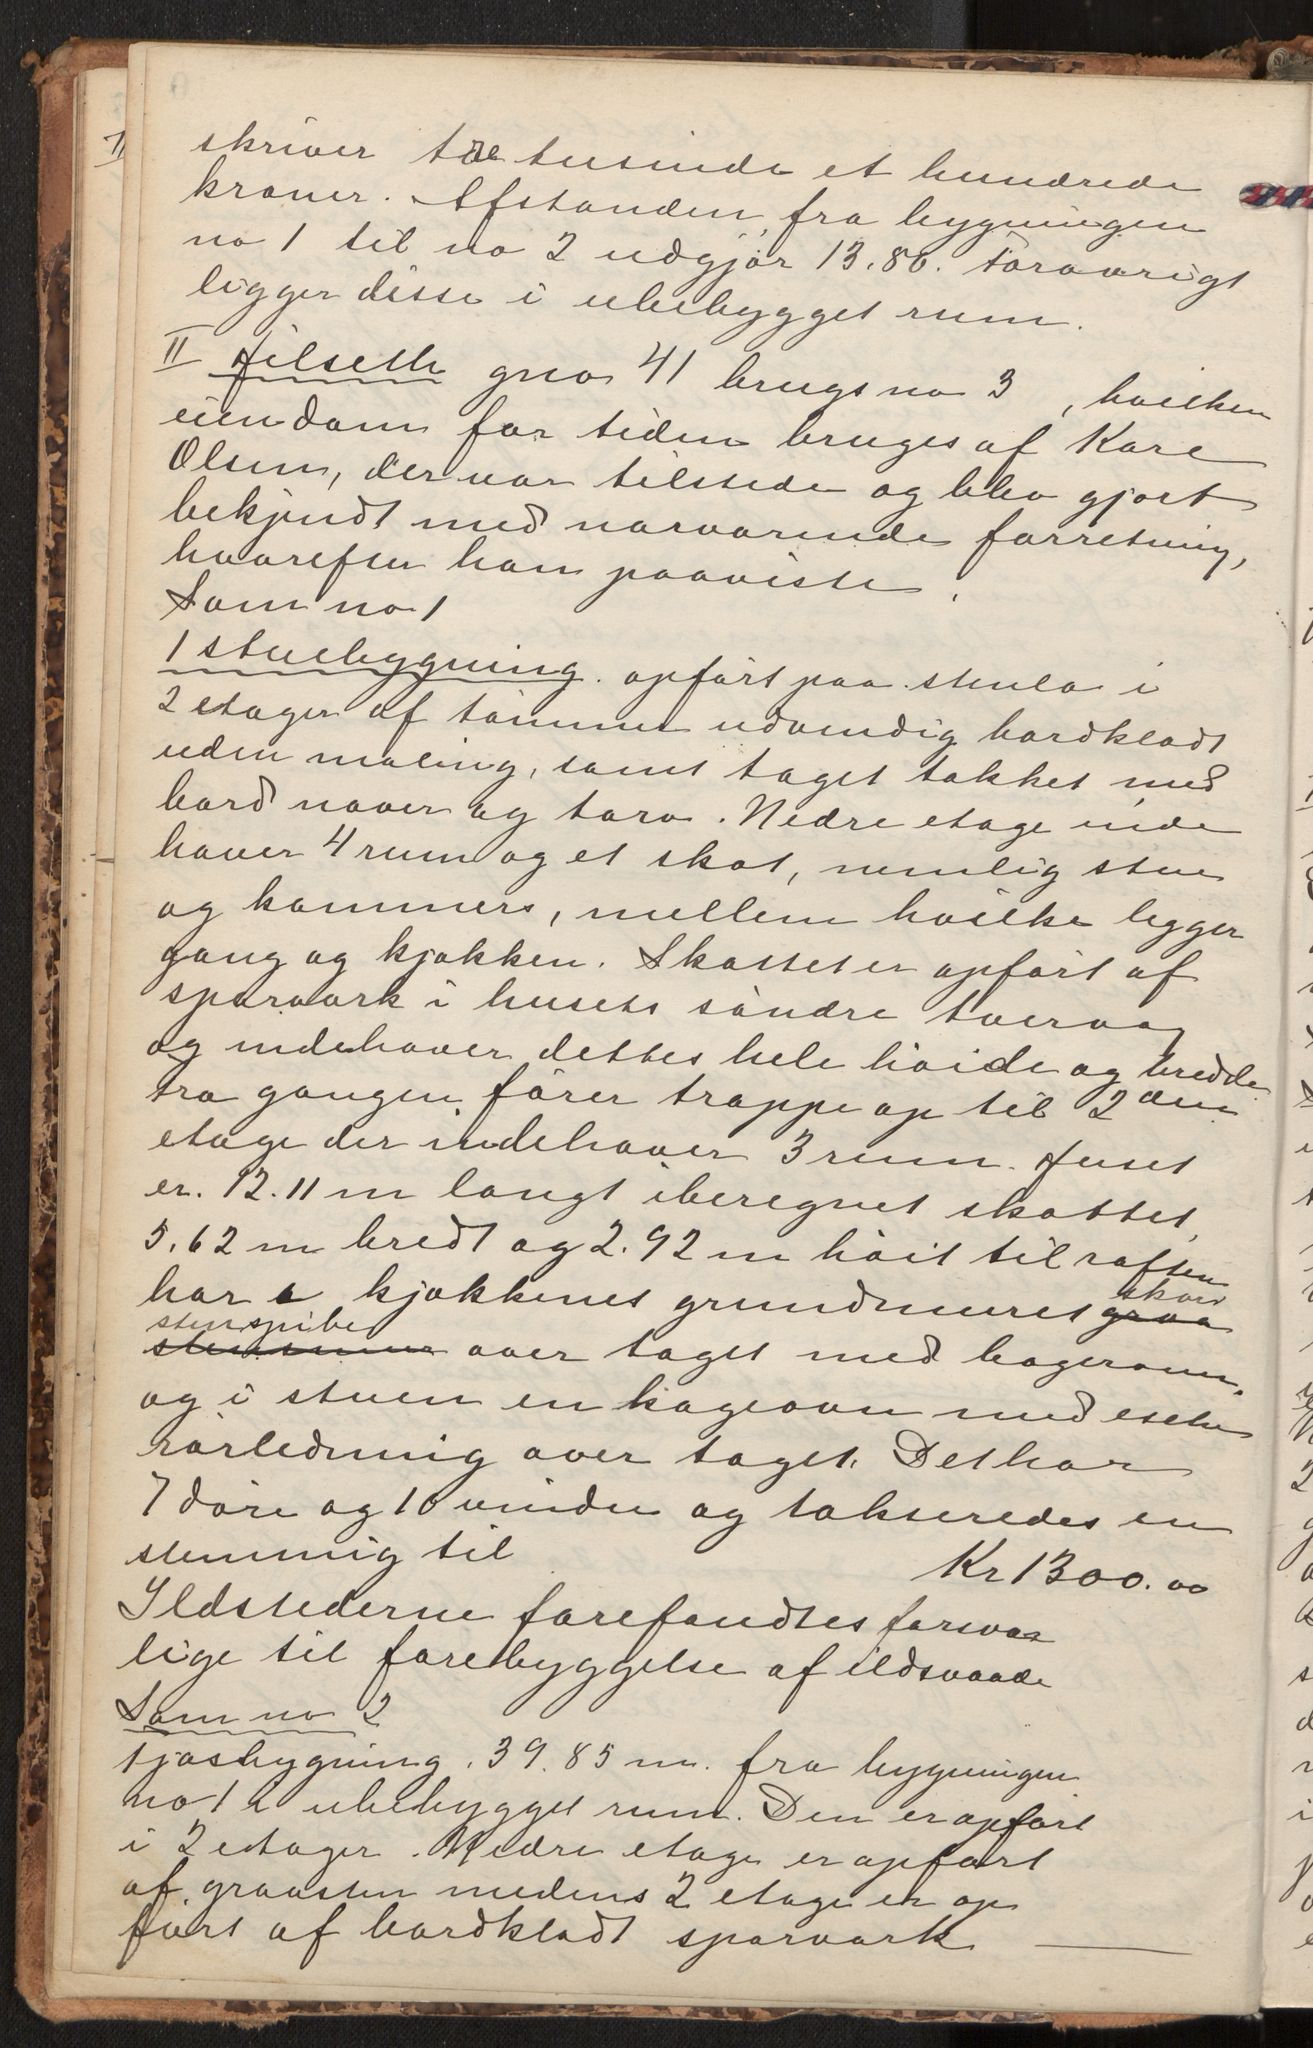 skriver tre tusinde et hundrede
kroner. Afstanden fra bygningen
no 1 til no 2 udgjør 13.80. Forøvrigt
ligger disse i ubebygget rum.
II Hilseth gno 41 brugs no 3, hvilken
eiendom for tiden bruges af Kare
Olsen, der var tilstede og blev gjort
bekjendt med nærværende forretning,
hvorefter han paaviste.
Som no 1
1 stuebygning. opført paa stenla i
2 etager af tømmer udvendig bordklædt
uden maling, samt taget tækket med
bord næver og torv. Nedre etage inde
haver 4 rum og et skot, nemlig stue
og kammers, mellem hvilke ligger
gang og kjøkken. Skottet er opført af
sparværk i husets søndre tværvæg
og indehaver dettes hele høide og bredde.
Fra gangen fører trappe op til 2 den
etage der indehaver 3 rum. Huset
er. 12.11 m langt iberegnet skottet,
5.62 m bredt og 2.92 m høit til raften
har i kjøkkenet grundmuret graa
stenspibe
stensmur over taget med bagerovn,
og i stuen en kageovn med
rørledning over taget. Det har
7 døre og 10 vinduer og takseredes en
stemmig til Kr 1300.00
Ildstederne forefandtes forsvar
lige til forebyggelse af ildsvaade
Som no 2
Fjøsbygning. 39.85 m. fra bygningen
no 1 i ubebygget rum. Den er opført
i 2 etager. Nedre etage er opført
af graasten medens 2 etage er op
ført af bordklædt sparværk